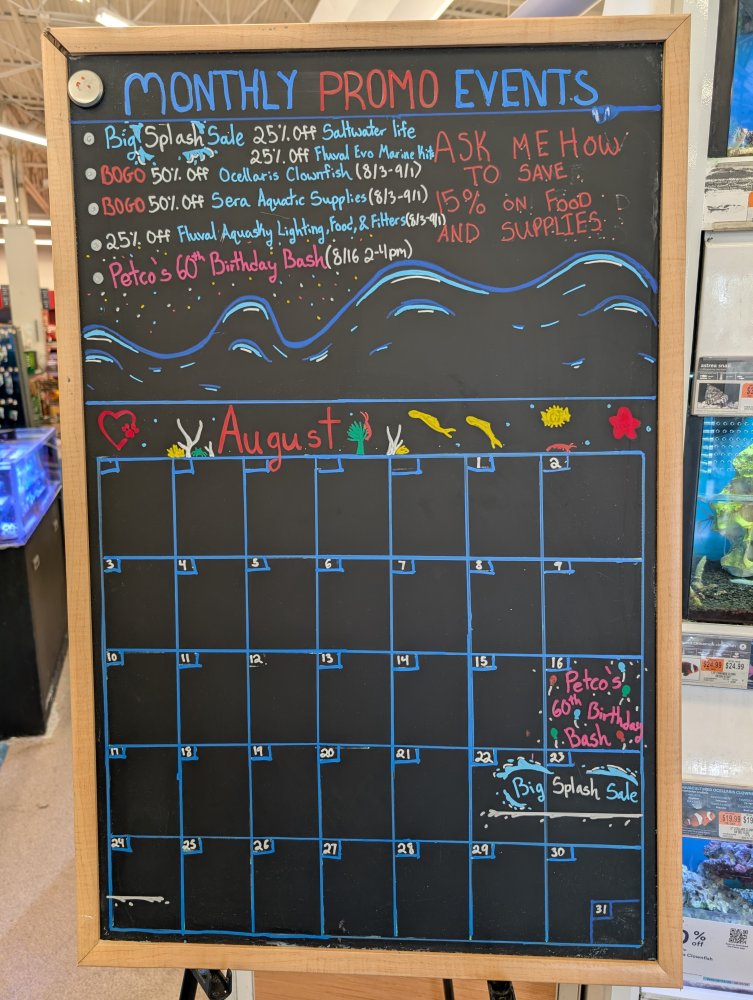 MONTHLY PROMO EVENTS
Big Splash Sale 25% Off Saltwater life
25% Off Fluval Evo Marine Kits
BOGO 50% Off Ocellaris Clownfish (8/3-9/1)
BOGO 50% Off Sera Aquatic Supplies (8/3-9/1)
25% Off Fluval Aquasky Lighting, Food, & Filters (8/3-9/1)
Petco's 60th Birthday Bash (8/16 2-4pm)
ASK ME HOW
TO SAVE
15% ON FOOD
AND SUPPLIES
August
1 2
3 4 5 6 7 8 9
10 11 12 13 14 15 16
Petco's
60th Birthday
Bash
17 18 19 20 21 22 23
Big Splash Sale
24 25 26 27 28 29 30
31
astrea snail
$24.99 $24.99
OCELLARIS CLOWN
$19.99
% off
Clownfish